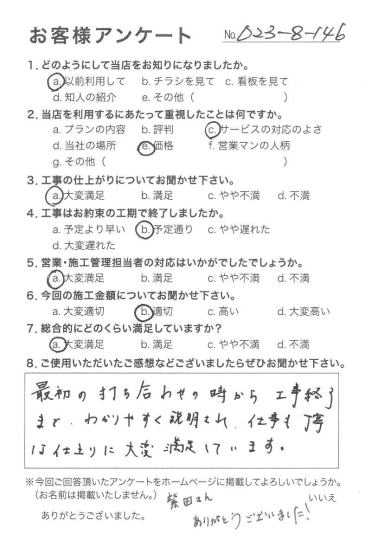 お客様アンケート No. 023-8-146
1. どのようにして当店をお知りになりましたか。
a. 以前利用して b. チラシを見て c. 看板を見て
d. 知人の紹介 e. その他（ ）
2. 当店を利用するにあたって重視したことは何ですか。
a. プランの内容 b. 評判 c. サービスの対応のよさ
d. 当社の場所 e. 価格 f. 営業マンの人柄
g. その他（ ）
3. 工事の仕上がりについてお聞かせ下さい。
a. 大変満足 b. 満足 c. やや不満 d. 不満
4. 工事はお約束の工期で終了しましたか。
a. 予定より早い b. 予定通り c. やや遅れた
d. 大変遅れた
5. 営業・施工管理担当者の対応はいかがでしたでしょうか。
a. 大変満足 b. 満足 c. やや不満 d. 不満
6. 今回の施工金額についてお聞かせ下さい。
a. 大変適切 b. 適切 c. 高い d. 大変高い
7. 総合的にどのくらい満足していますか？
a. 大変満足 b. 満足 c. やや不満 d. 不満
8. ご使用いただいたご感想などございましたらぜひお聞かせ下さい。
最初の打ち合わせの時から 工事終了
まで、わかりやすく説明され、仕事も丁寧
は仕上りに大変満足しています。
※今回ご回答頂いたアンケートをホームページに掲載してよろしいでしょうか。
（お名前は掲載いたしません。） 柴田さん いいえ
ありがとうございました。 ありがとうございました！